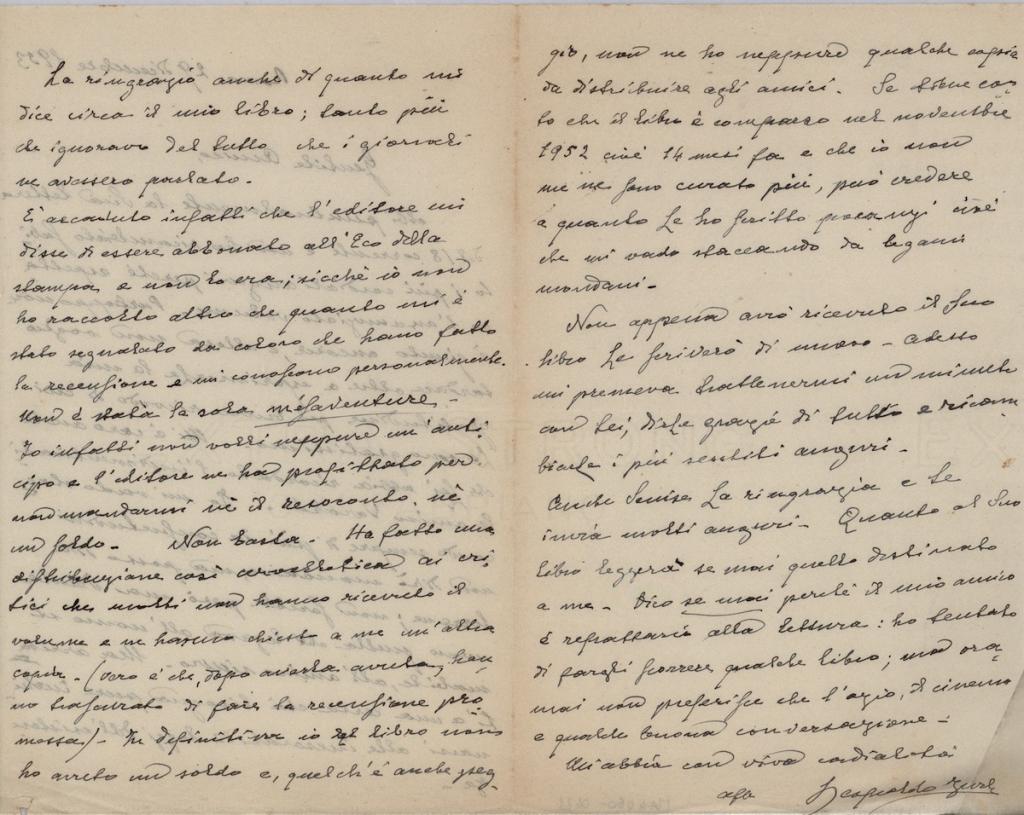 La ringrazio anche di quanto mi
dice circa il mio libro; tanto più
che ignoravo del tutto che i giornali
ne avessero parlato.
È accaduto infatti che l'editore mi
disse di essere abbonato all'Eco della
stampa e non lo era; sicché io non
ho raccolto altro che quanto mi è
stato segnalato da coloro che hanno fatto
la recensione e mi conoscono personalmente.
Non è stata la sola mésaventure.
Io infatti non volli neppure un anti
cipo e l'editore ne ha profittato per
non mandarmi né il resoconto, né
un soldo. Non basta. Ha fatto una
distribuzione così ai cri
tici che molti non hanno ricevuto il
volume e ne hanno chiesto a me un'altra
copia. (Vero è che, dopo averla avuta, han
no trascurato di fare la recensione pro
messa). In definitiva io dal libro non
ho avuto un soldo e, quel ch'è anche peg-
gio, non ne ho neppure qualche copia
da distribuire agli amici. Se tiene con-
to che il libro è comparso nel novembre
1952 cioè 14 mesi fa e che io non
me ne sono curato più, può credere
a quanto Le ho scritto poc'anzi cioè
che mi vado staccando da legami
mondani.
Non appena avrò ricevuto il Suo
libro Le scriverò di nuovo - adesso
mi premeva trattenermi un minuto
con Lei, dirLe grazie di tutto e ricam
biarLe i più sentiti auguri.
Anche Senise La ringrazia e Le
invia molti auguri. Quanto al Suo
libro leggerà se mai quello destinato
a me. Dico se mai perché il mio amico
è refrattario alla lettura: ho tentato
di fargli scorrere qualche libro; ma ora-
mai non preferisce che l'ozio, il cinema
e qualche buona conversazione.
Mi abbia con viva cordialità
aff
Leopoldo Zurlo